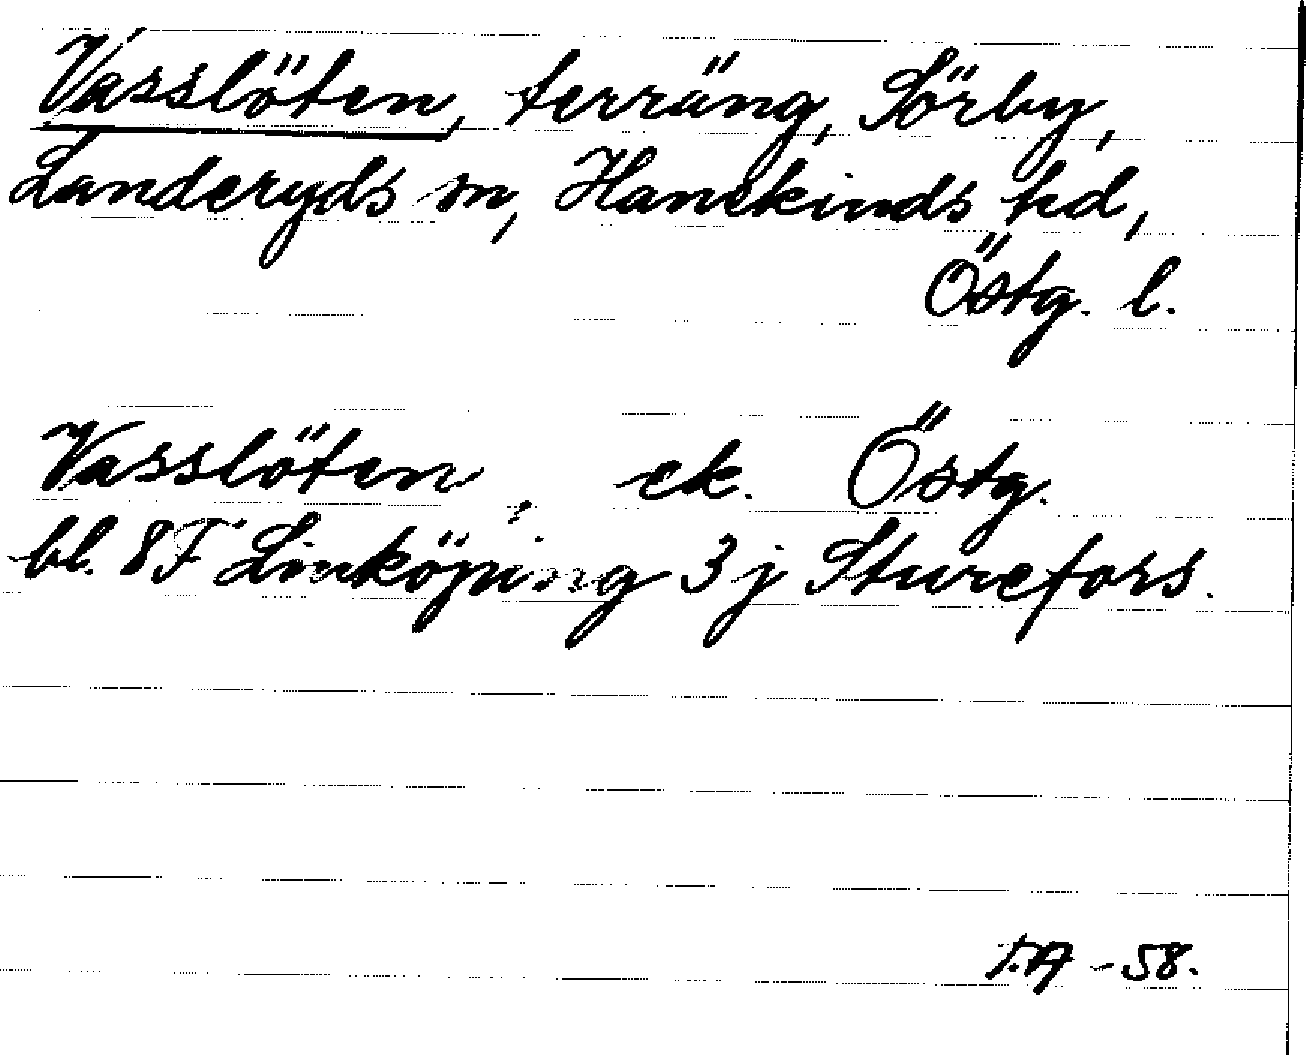 Vasslöten, terräng, Sörby,
Landeryds sn, Hanekinds hd,
Östg. l.
Vasslöten, ek. Östg.
bl. 8F Linköping 3j Sturefors.
T.A -58.